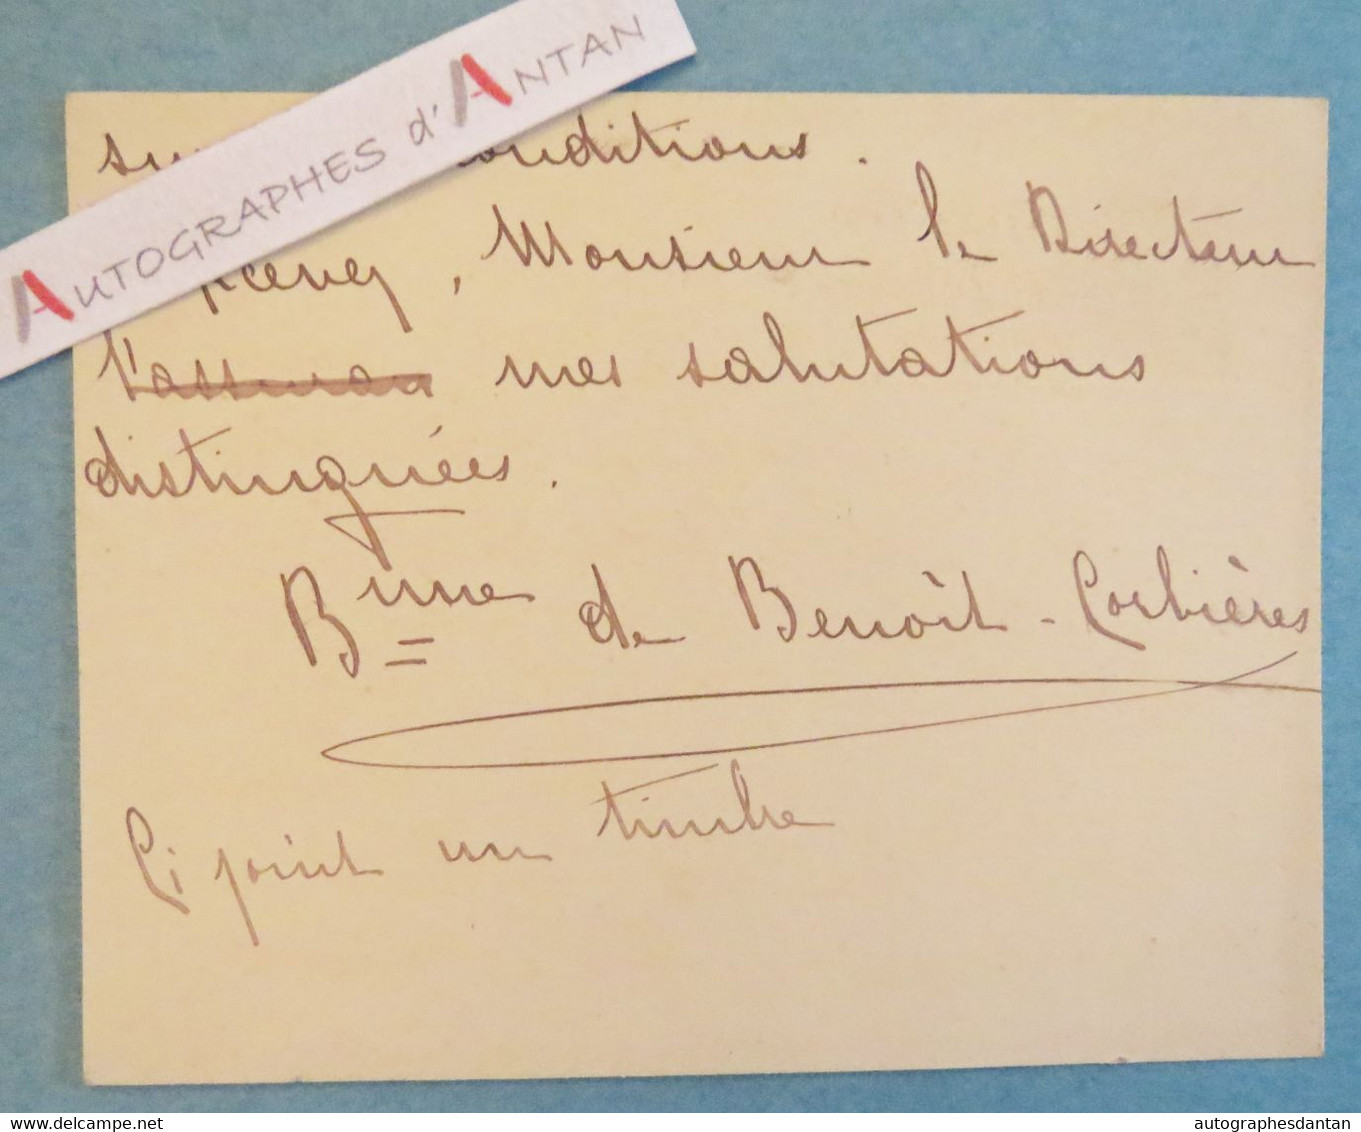 AUTOGRAPHES d'ANTAN
conditions.
Recevez, Monsieur le Directeur
l'assuran mes salutations
distinguées.
Bnne de Benoît-Corbières
Ci joint un timbre
www.delcampe.net
autographesdantan